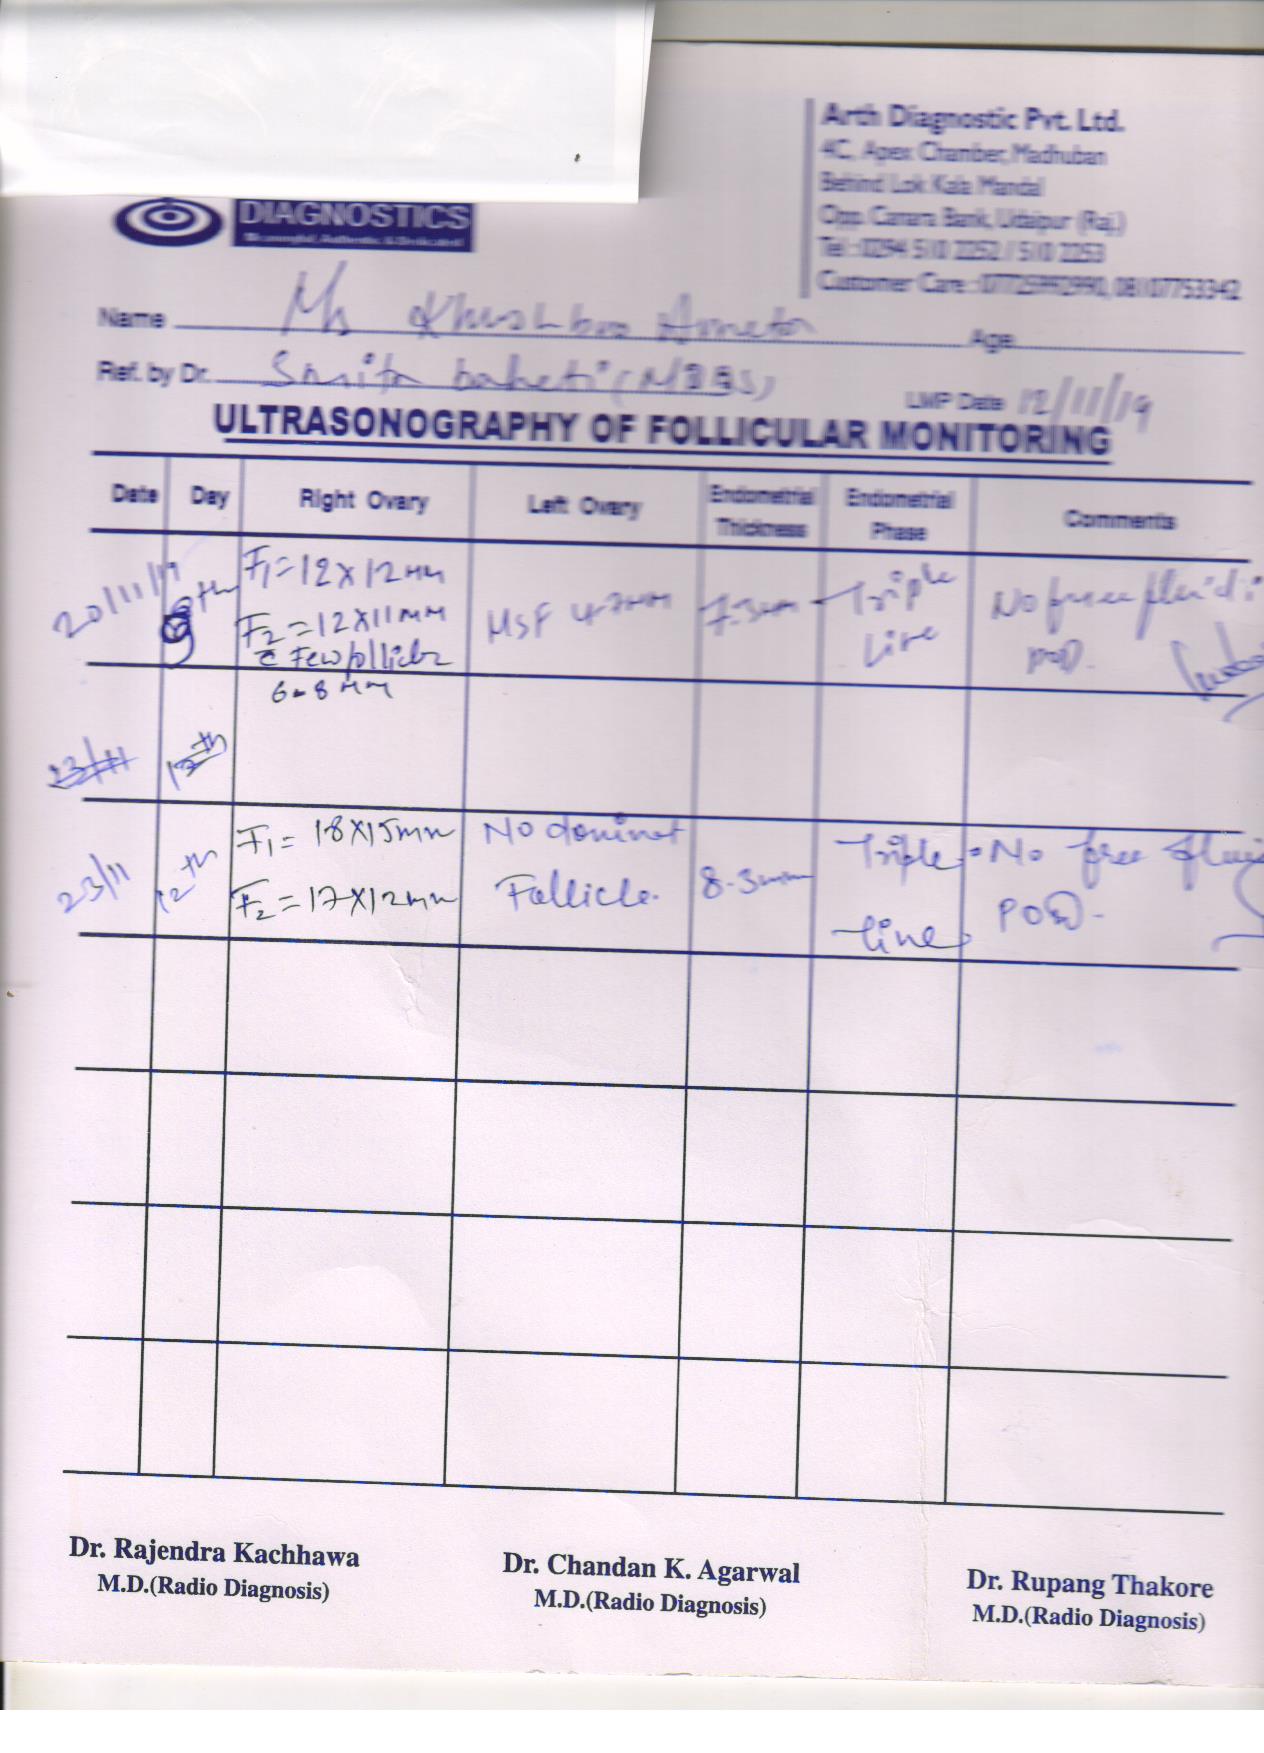 Arth Diagnostic Pvt. Ltd.
4C, Apex Chamber, Madhuban
Behind Lok Kala Mandal
Opp. Canara Bank, Udaipur (Raj.)
Tel : 0294 510 2252 / 510 2253
Customer Care : 07725992990, 08107753342
DIAGNOSTICS
Meaningful, Authentic & Dedicated
Name Ms Khushboo Ameta Age
Ref. by Dr. Smita baheti (MBBS) LMP Date 12/11/19
ULTRASONOGRAPHY OF FOLLICULAR MONITORING
Date Day Right Ovary Left Ovary Endometrial Thickness Endometrial Phase Comments
20/11/19 9th F1= 12X12mm MSF 7.3mm Triple Line No free fluid
F2 = 12X11mm POD.
c Few follicle
6-8 mm
23/11 12th
23/11 12th F1= 18X15mm No dominot Follicle. 8.3mm Triple line No free fluid
F2 = 17X12mm POD.
Dr. Rajendra Kachhawa
M.D.(Radio Diagnosis)
Dr. Chandan K. Agarwal
M.D.(Radio Diagnosis)
Dr. Rupang Thakore
M.D.(Radio Diagnosis)